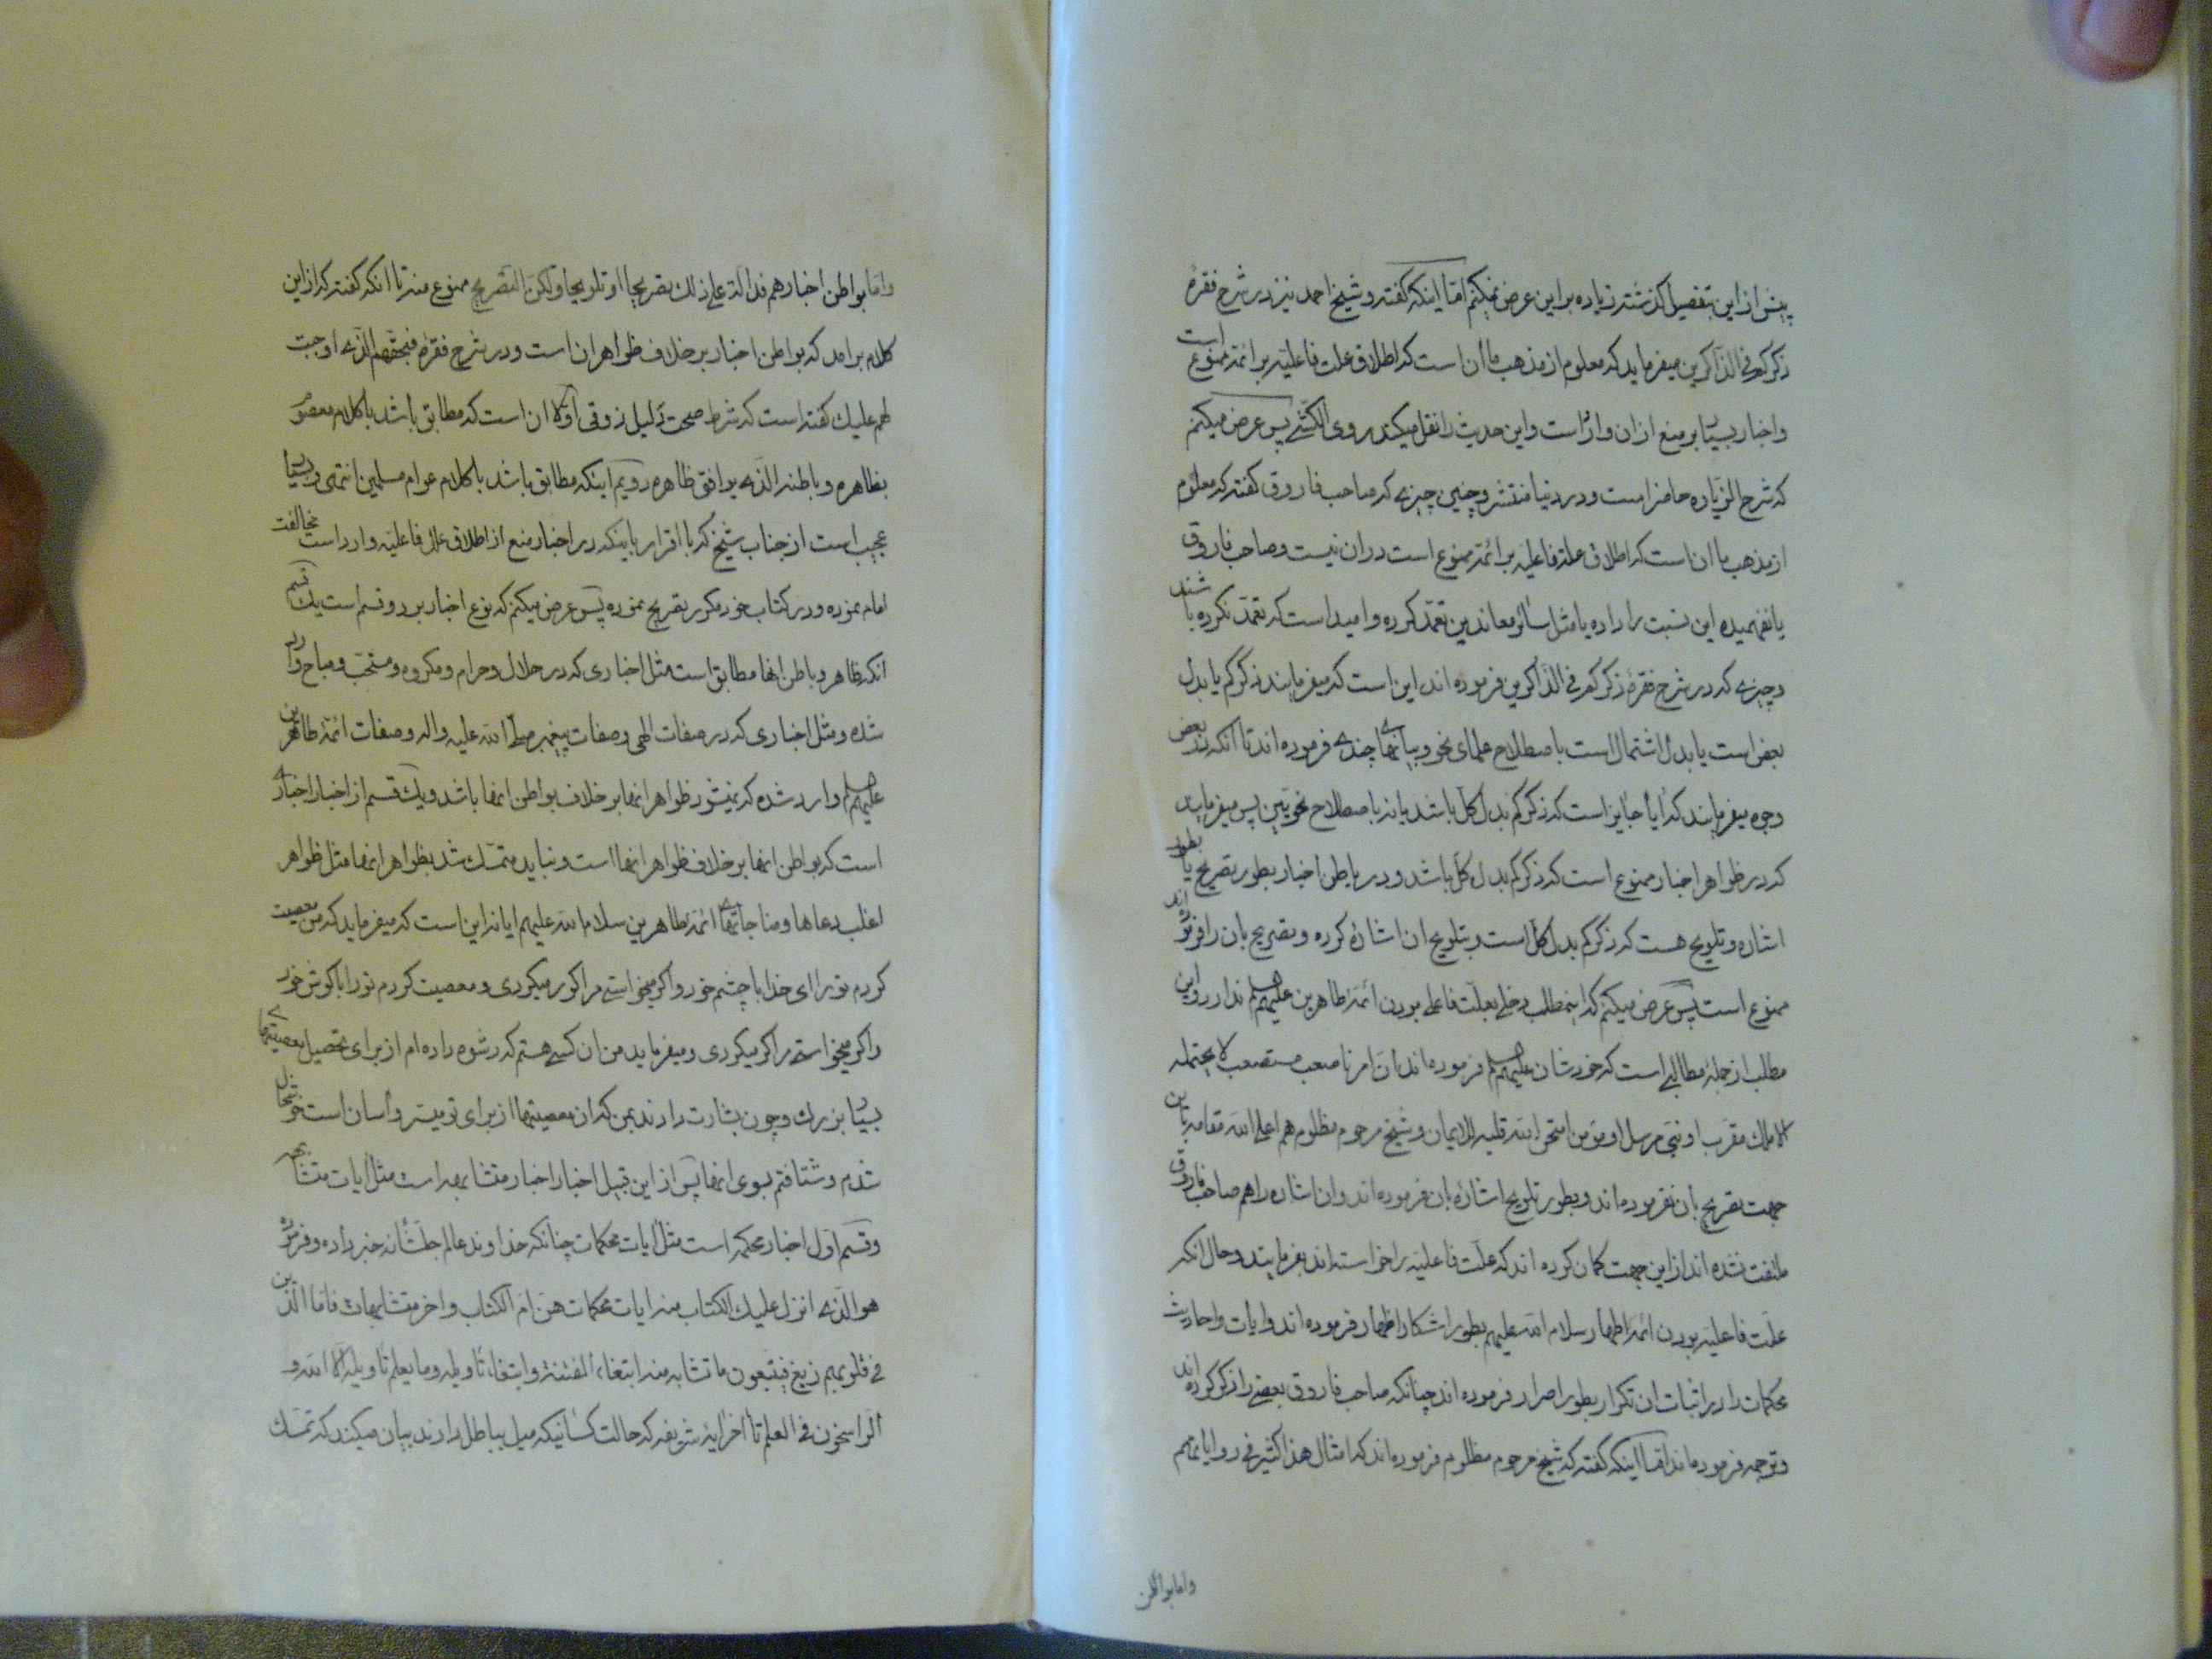 پیش از این بتفصیل گذشته زیاده بر این عرض نمیکنم اما اینکه گفته و شیخ احمد نیز در شرح فقره
ذکرکم فی الذاکرین میفرماید که معلوم از مذهب ما ان است که اطلاق علت فاعلیه بر ائمه ممنوع است
و اخبار بسیار بر منع از ان وارد است و این حدیث را نقل میکند روی الکشی پس عرض میکنم
که شرح الزیاره حاضر است و در دنیا منتشر و چنین چیزی که صاحب فاروق گفته که معلوم
از مذهب ما ان است که اطلاق علة فاعلیه بر ائمه ممنوع است در ان نیست و صاحب فاروق
یا نفهمیده این نسبت را داده یا مثل سائر معاندین تعمد کرده و امید است که تعمد نکرده باشند
و چیزی که در شرح فقره ذکرکم فی الذاکرین فرموده اند این است که میفرمایند ذکرکم یا بدل
بعض است یا بدل اشتمال است باصطلاح علمای نحو و بیانهای چندی فرموده اند تا انکه در بعض
وجوه میفرمایند که ایا جایز است که ذکرکم بدل کل باشد یا نه باصطلاح نحویین پس میفرماید
که در ظواهر اخبار ممنوع است که ذکرکم بدل کل باشد و در باطن اخبار بطور تصریح یا بطور
اشاره و تلویح هست که ذکرکم بدل کل است و بتلویح ان اشاره کرده و تصریح بان را فرموده اند
ممنوع است پس عرض میکنم که اینمطلب دخلی بعلت فاعلی بودن ائمه طاهرین علیهم السلم ندارد و این
مطلب از جمله مطالبی است که خودشان علیهم السلم فرموده اند ان امرنا صعب مستصعب لا یحتمله
الا ملک مقرب او نبی مرسل او مؤمن امتحن الله قلبه للایمان و شیخ مرحوم مظلوم هم اعلی الله مقامه باین
جهت تصریح بان نفرموده اند و بطور تلویح اشاره بان فرموده اند و ان اشاره را هم صاحب فاروق
ملتفت نشده اند از این جهت گمان کرده اند که علت فاعلیه را خواسته اند بفرمایند و حال انکه
علت فاعلیه بودن ائمه اطهار سلام الله علیهم بطور اشکار اظهار فرموده اند و ایات و احادیث
محکمات را در اثبات ان تکرار بطور اصرار فرموده اند چنانکه صاحب فاروق بعضی را ذکر کرده اند
و ترجمه فرموده اند اما اینکه گفته که شیخ مرحوم مظلوم فرموده اند که امثال هذا کثیر فی روایاتهم
و اما بواطن
و اما بواطن اخبارهم فدالة علی ذلك تصریحا او تلویحا ولکن التصریح ممنوع منه تا انکه گفته که از این
کلام برامد که بواطن اخبار بر خلاف ظواهر ان است و در شرح فقره فبحقهم الذی اوجبت
لهم علیك گفته است که شرط صحت دلیل ذوقی اولا ان است که مطابق باشد با کلام معصوم
بظاهره و باطنه الذی یوافق ظاهره دویم اینکه مطابق باشد با کلام عوام مسلمین انتهی و بسیار
عجیب است از جناب شیخ که با اقرار باینکه در اخبار منع از اطلاق علل فاعلیه وارد است مخالفت
امام نموده و در کتاب خود مکرر تصریح نموده پس عرض میکنم که نوع اخبار بر دو قسم است یك قسم
انکه ظاهر و باطن انها مطابق است مثل اخباری که در حلال و حرام و مکروه و مستحب و مباح وارد
شده و مثل اخباری که در صفات الهی و صفات پیغمبر صلی الله علیه و اله و صفات ائمه طاهرین
علیهم السلم وارد شده که نمیشود ظواهر انها بر خلاف بواطن انها باشد و یك قسم از اخبار اخباری
است که بواطن انها بر خلاف ظواهر انها است و نباید متمسك شد بظواهر انها مثل ظواهر
اغلب دعاها و مناجاتهای ائمه طاهرین سلام الله علیهم ایا نه این است که میفرماید که من معصیت
کردم تو را ای خدا با چشم خود و اگر میخواستی مرا کور میکردی و معصیت کردم تو را با گوش خود
و اگر میخواستی مرا کر میکردی و میفرماید من ان کسی هستم که رشوه داده ام از برای تحصیل معصیتهای
بسیار بزرك و چون بشارت دادند بمن که ان معصیتها از برای تو میسر و اسان است خوشحال
شدم و شتافتم بسوی انها پس از این قبیل اخبار اخبار متشابهه است مثل ایات متشابهه
و قسم اول اخبار محکمه است مثل ایات محکمات چنانکه خداوند عالم جلشانه خبر داده و فرموده
هو الذی انزل علیك الکتاب منه ایات محکمات هن ام الکتاب و اخر متشابهات فاما الذین
فی قلوبهم زیغ فیتبعون ما تشابه منه ابتغاء الفتنة و ابتغاء تاویله و ما یعلم تاویله الا الله و
الراسخون فی العلم تا اخر ایه شریفه که حالت کسانیکه میل بباطل دارند بیان میکند که تمسك